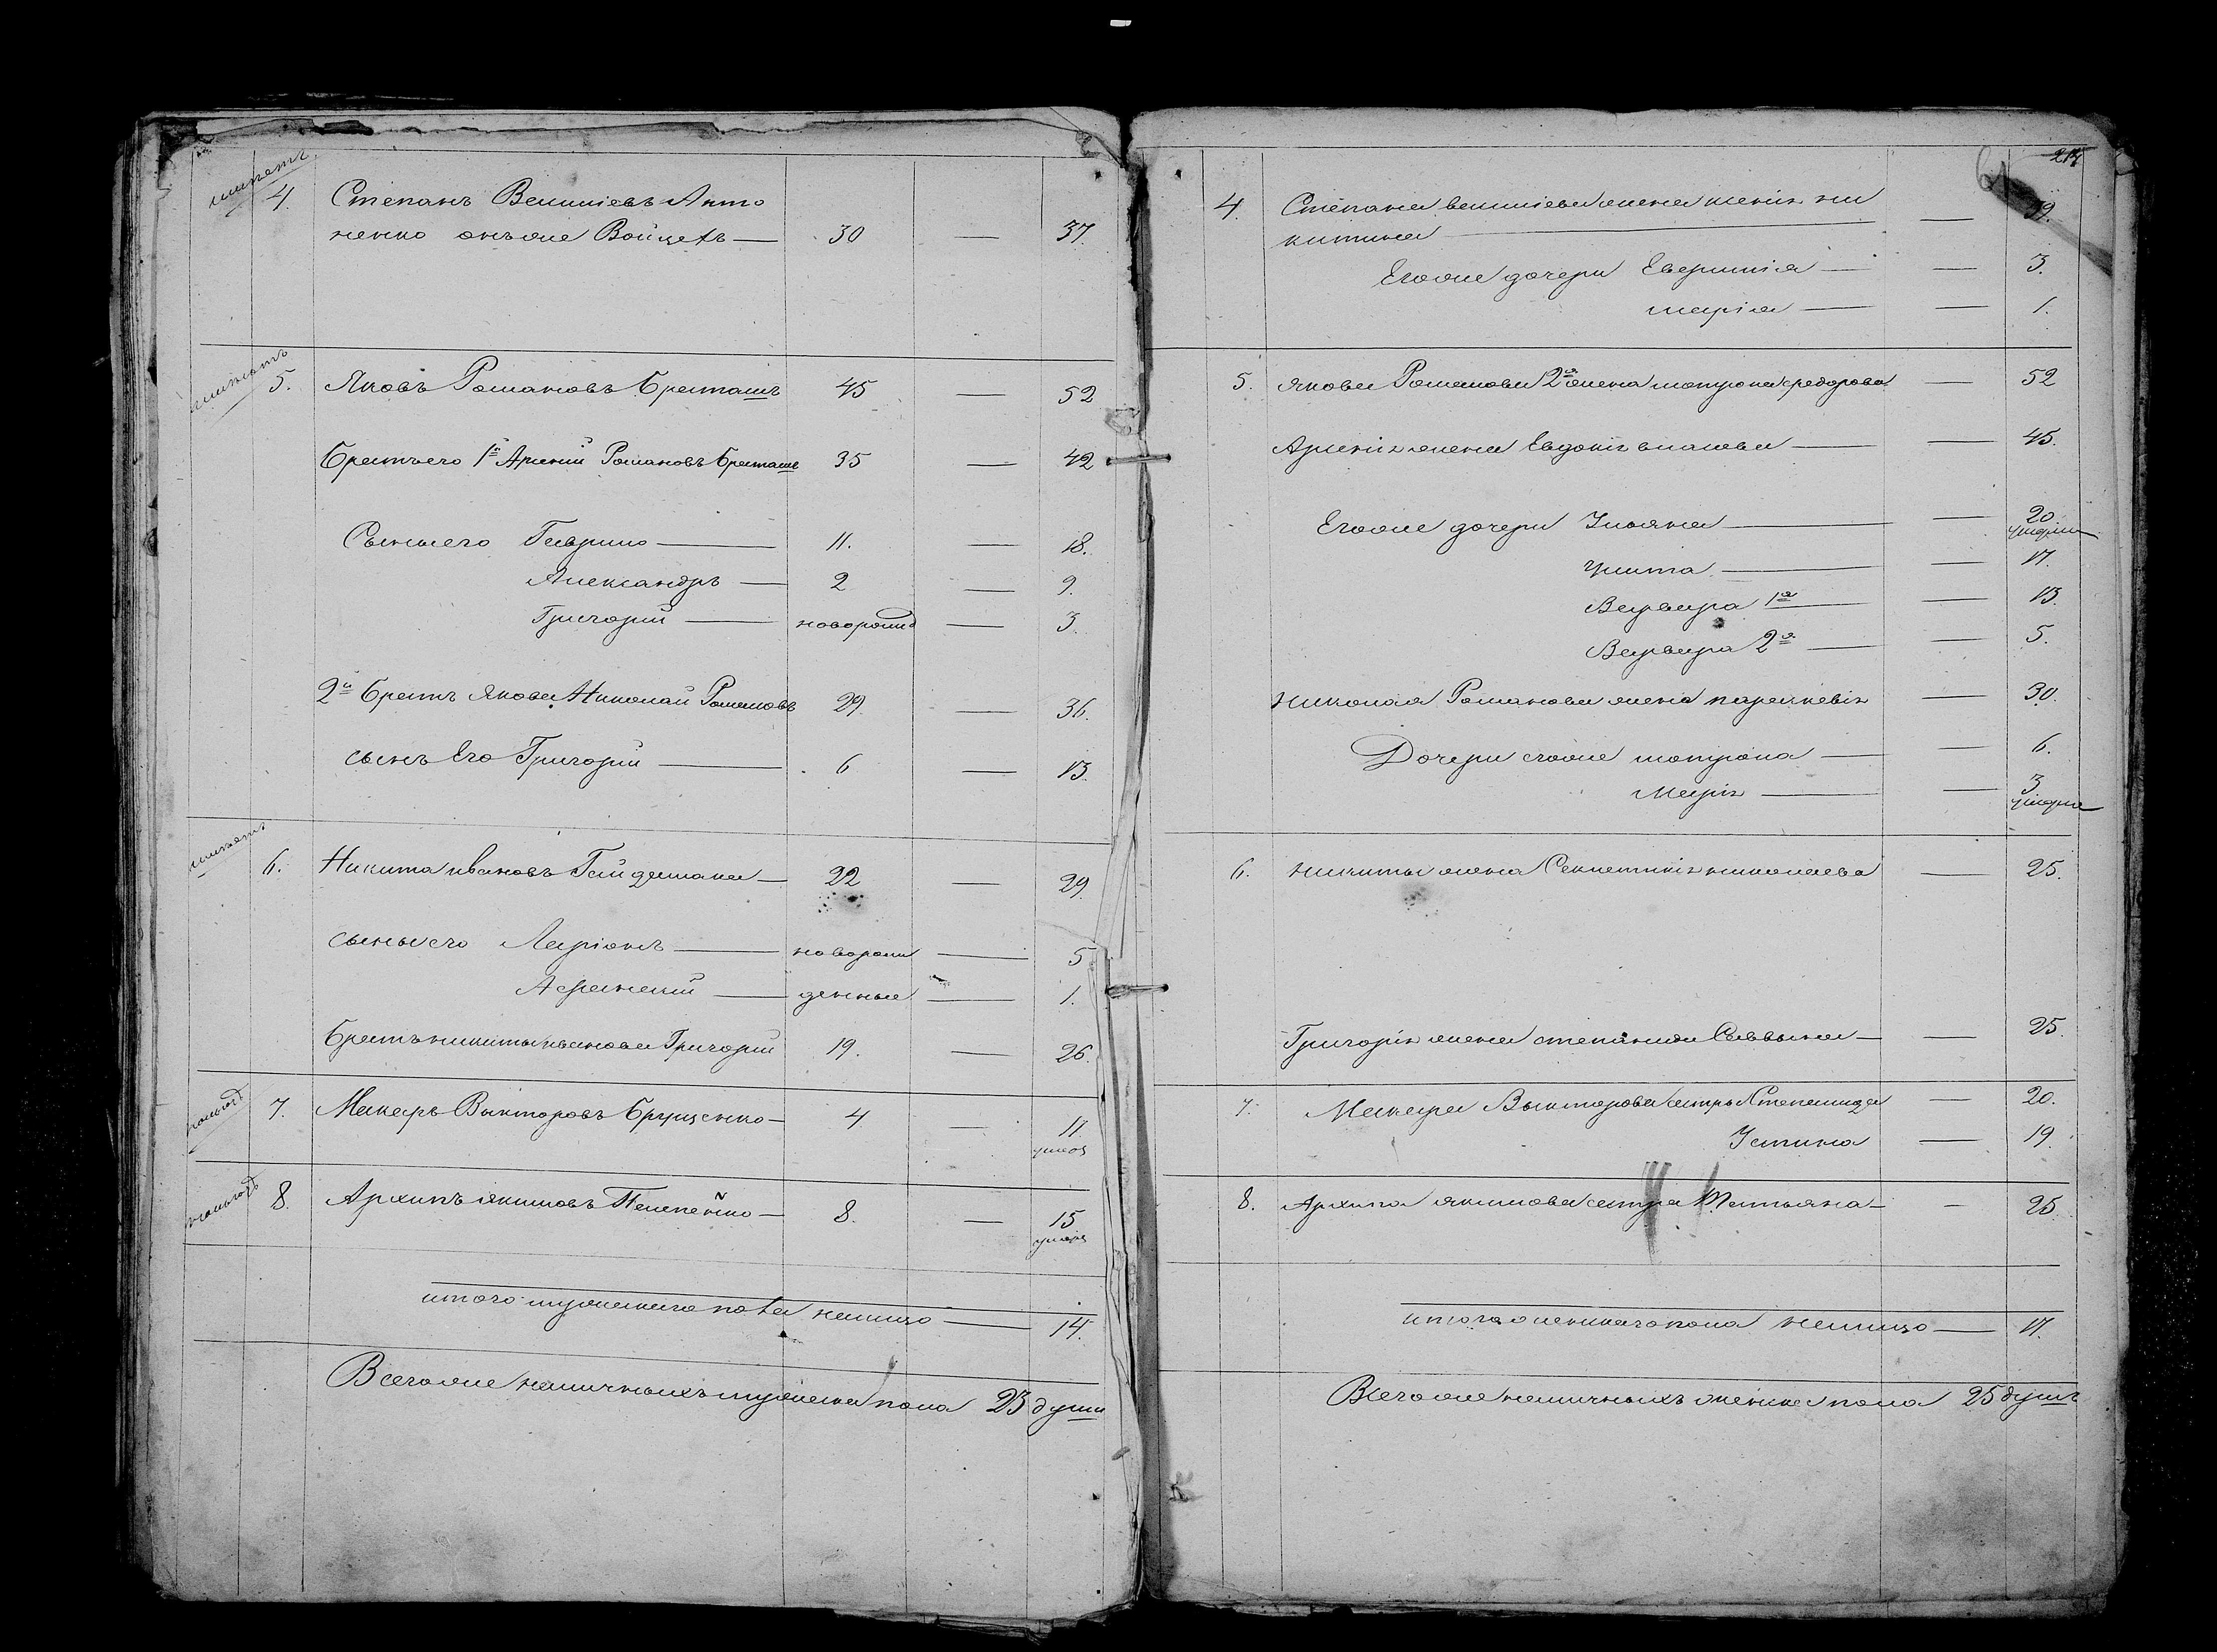 4. Степанъ Василіевъ Анто
ненко онъ же Войцехъ — 30 — 37.
5. Яковъ Романовъ Браташъ 45 — 52
Братъ его 1й Арсеній Романовъ Браташъ 35 — 42
Сыны его Гаврило — 11. — 18.
Александръ — 2 — 9.
Григорій — новорожд — 3.
2й Братъ Якова Николай Романовъ 29. — 36.
сынъ Его Григорій — 6 — 13.
6. Никита Ивановъ Гайдамака — 22 — 29.
сыны его Ларіонъ — новорож — 5
Афанасий — денные — 1.
Братъ никиты иванова Григорий 19. — 26.
7. Макаръ Викторовъ Брущенко — 4 — 11.
8. Архипъ якимовъ — 8. — 15
итого мужескаго пола налицо — 14.
Всего же наличныхъ мужеска пола 23 души
217
4. Степана василіева жена ксенія ни
китина — 39.
Его же дочери Евфимія — 3.
марія — 1.
5. Якова Романова 2я жена матрона федорова — 52
Арсенія жена Евдокія власова — 45.
Его же дочери Ульяна — 20.
умерла
Улита — 17.
Варвара 1я — 13.
Варвара 2я — 5.
Николая Романова жена параскевія — 30.
Дочери его же матрона — 6.
Марія — 3
умерла
6. никиты жена николаева — 25.
Григорія жена степанида Саввина — 25.
7. Макара Викторова сестры Степанида — 20.
Устина — 19.
8. Архипа якимова сестра Татьяна — 25
итого женскаго пола налицо — 17.
Всего же наличныхъ женска пола 25 душъ